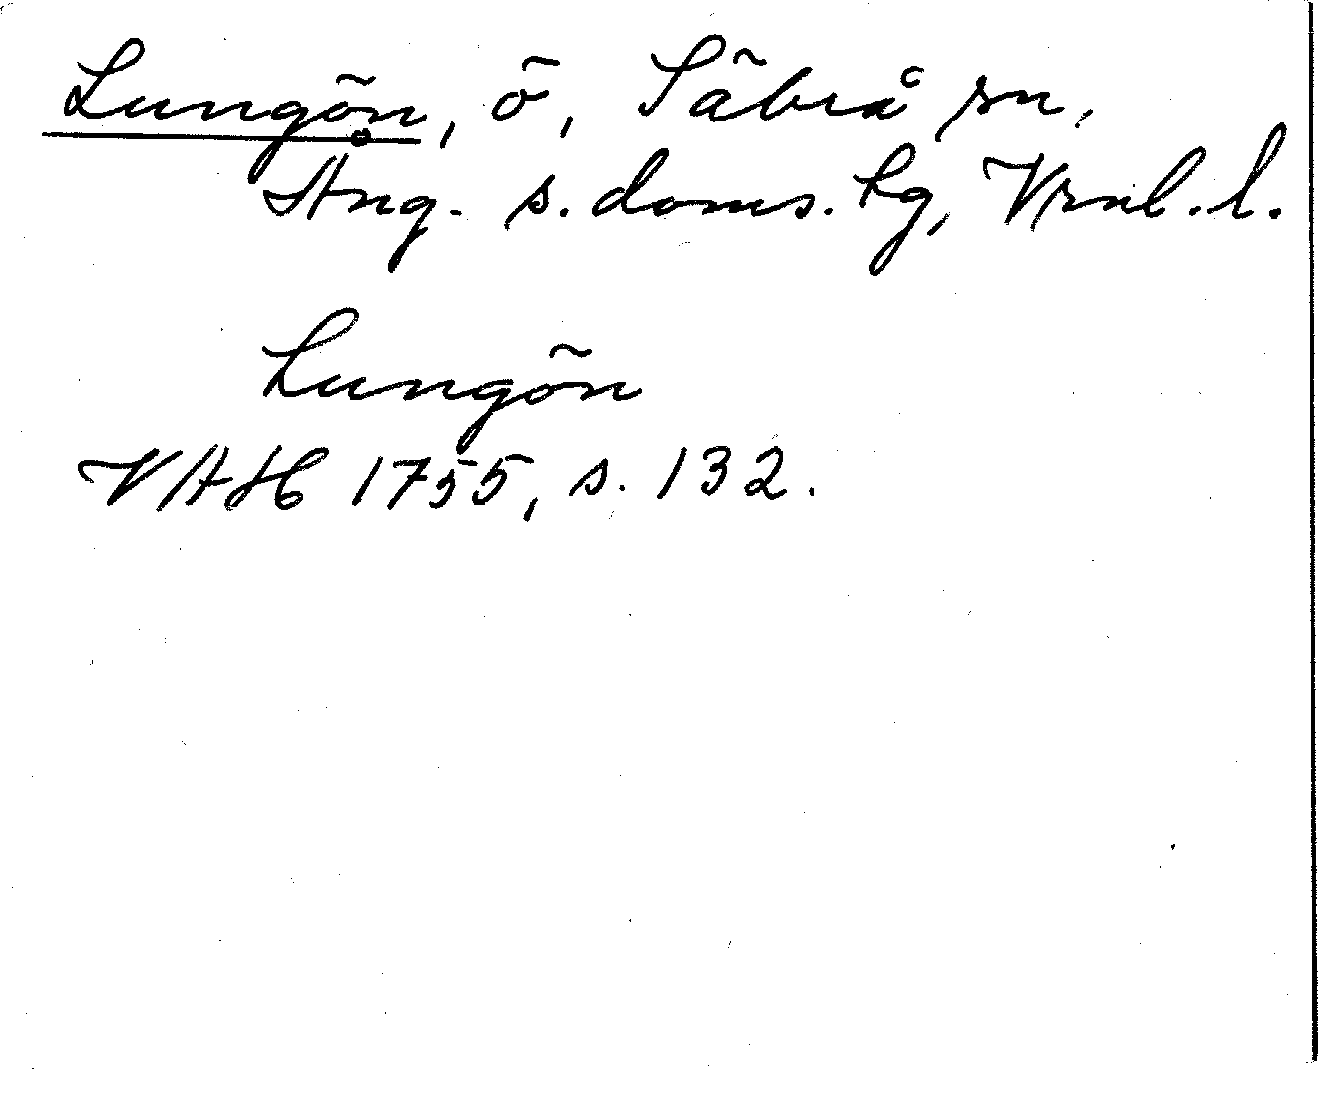 Lungön, ö, Säbrå sn,
Ång. s. doms. tg, Vrnl. l.
Lungön
VAH 1755, s. 132.